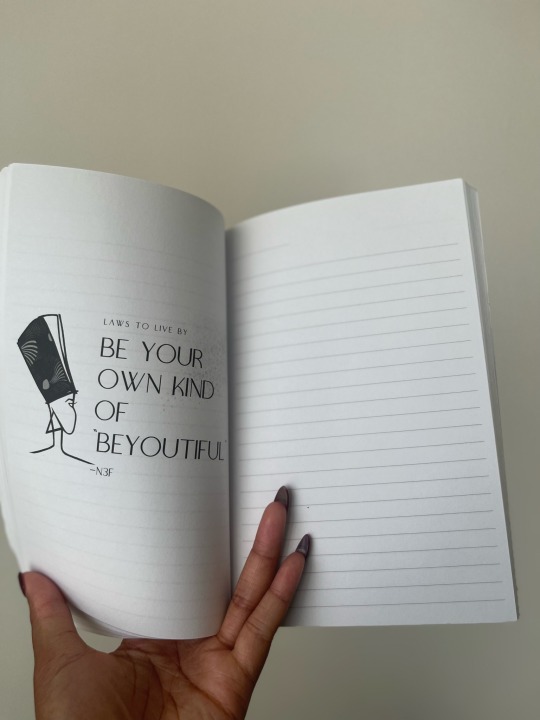 LAWS TO LIVE BY
BE YOUR
OWN KIND
OF
"BEYOUTIFUL"
~N3F